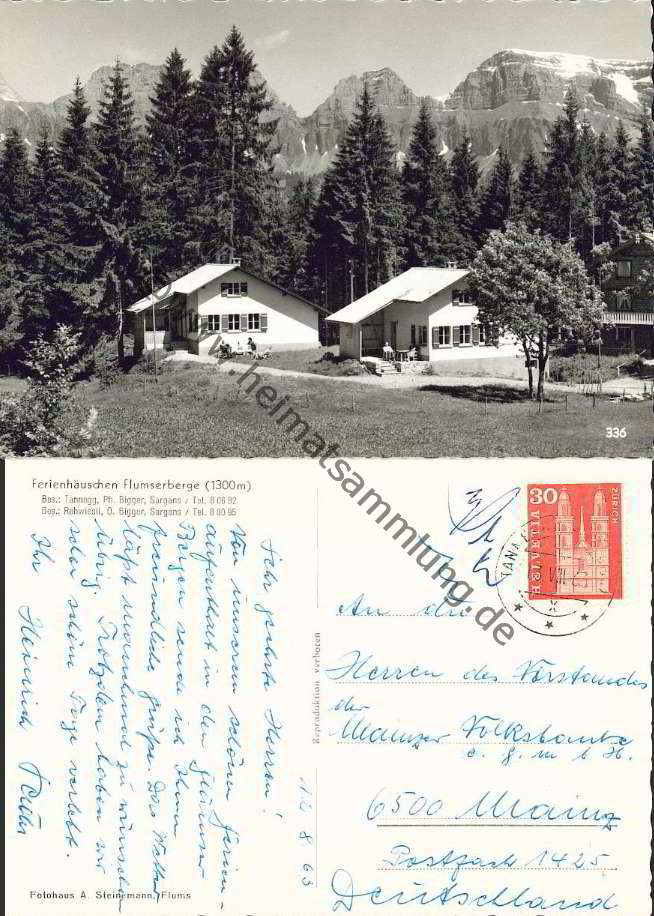 336
Ferienhäuschen Flumserberge (1300m)
Bes.: Tannegg, Ph. Bigger, Sargans / Tel. 8 06 92
Bes.: Rohwiesli, O. Bigger, Sargans / Tel. 8 00 95
12 8 63
Sehr geehrte Herren!
Von unserem schönen Ferien-
aufenthalt in den Flumser
Bergen sende ich Ihnen
freundliche Grüße. Das Wetter
läßt manchmal zu wünschen
übrig. Trotzdem haben wir
schon schöne Tage verlebt.
Ihr Heinrich
Fotohaus A. Steinemann, Flums
Reproduktion verboten
30
HELVETIA
ZÜRICH
TANN
VIII
An die
Herren des Vorstandes
der
Mainzer Volksbank
e. G. m b H.
6500 Mainz
Postfach 1425
Deutschland
www.heimatsammlung.de